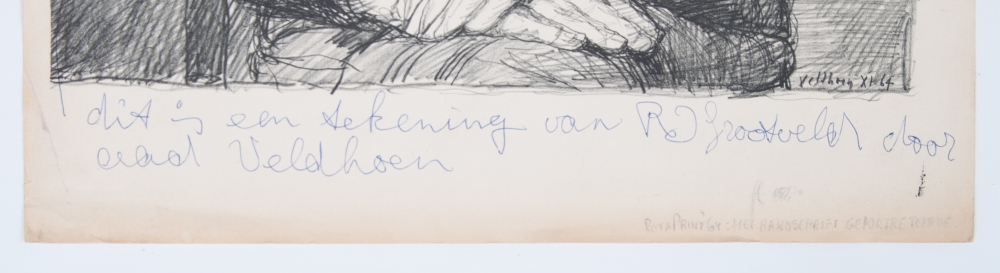 Veldhoen XI 64
dit is een tekening van RJ Grootveld door
aad Veldhoen
MET HANDSCHRIFT